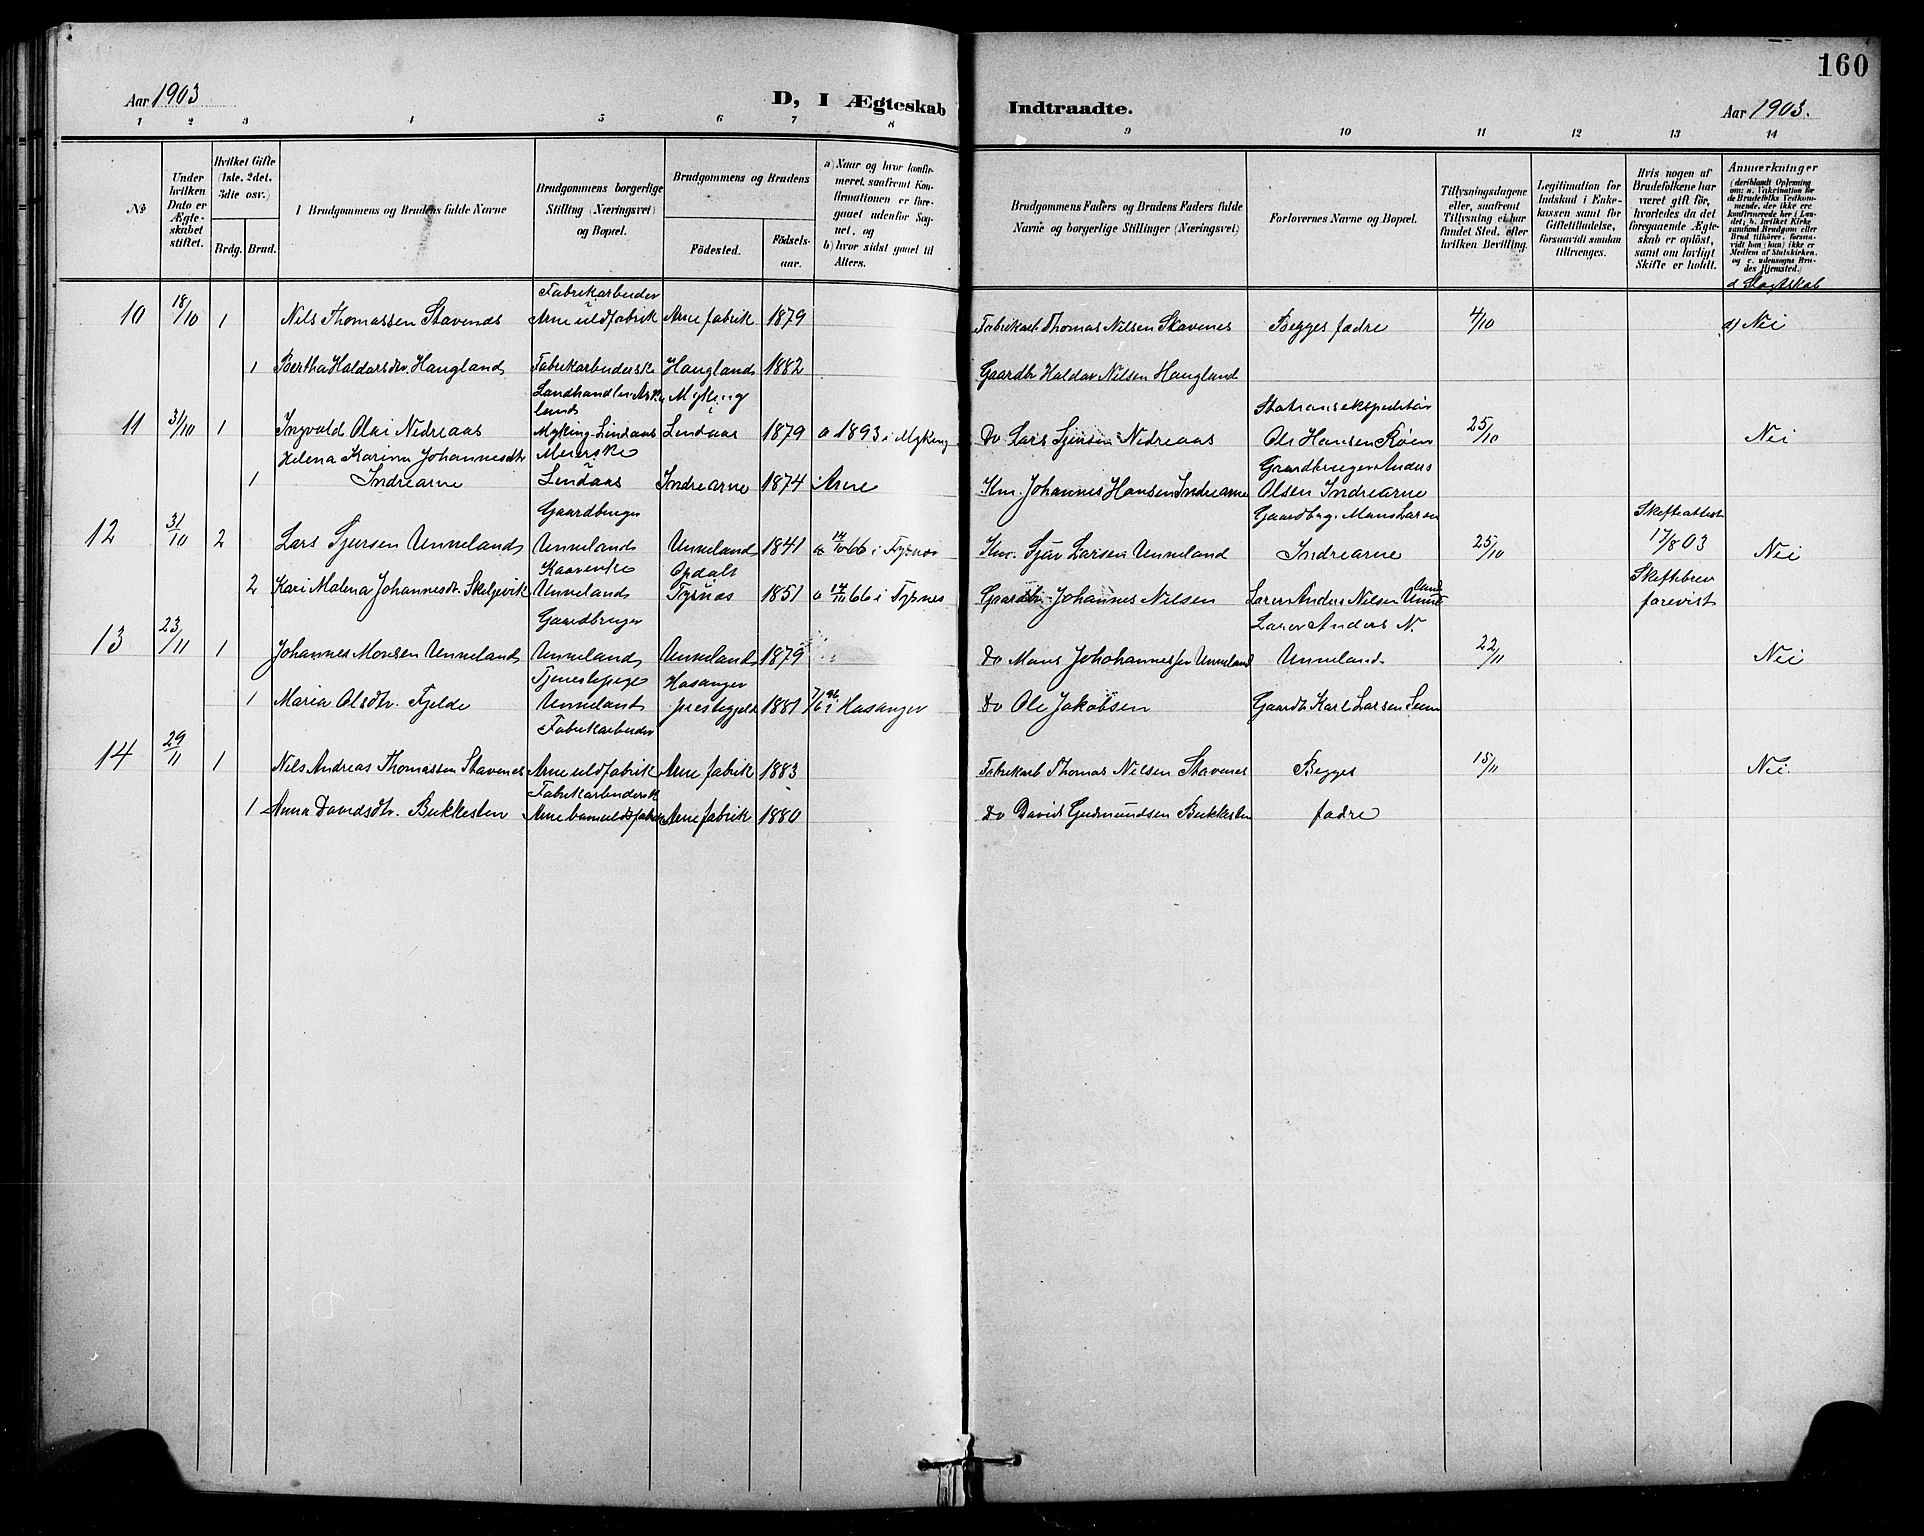 160
Aar 1903
D, I Ægteskab
Indtraadte.
Aar 1903.
1 2 3 4 5 6 7 8
9 10 11 12 13 14
№
Under hvilken Dato er Ægteskabet stiftet.
Hvilket Gifte (1ste, 2det, 3die osv.)
Brdg. Brud.
Brudgommens og Brudens fulde Navne
Brudgommens borgerlige Stilling (Næringsvei) og Bopæl.
Brudgommens og Brudens
Födested.
Födselsaar.
a) Naar og hvor konfirmeret, saafremt Konfirmationen er foregaaet udenfor Sognet, og
b) hvor sidst gaaet til Alters.
Brudgommens Faders og Brudens Faders fulde Navne og borgerlige Stillinger (Næringsvei)
Forlovernes Navne og Bopæl.
Tillysningsdagene eller, saafremt Tillysning ei har fundet Sted, efter hvilken Bevilling.
Legitimation for Indskud i Enkekassen samt for Giftetilladelse, forsaavidt saadan tiltrænges.
Hvis nogen af Brudefolkene har været gift før, hvorledes da det foregaaende Ægteskab er opløst, samt om lovligt Skifte er holdt.
Anmærkninger
d Slægtskab
Fabrikarbeider
10 18/10 1 Nils Thomassen Stavenes Arne uldfabrik Arne fabrik 1879 Fabrikarb Thomas Nilsen Stavenes Begges fædre 4/10 d) Nei
1 Bertha Haldorsdtr. Haugland Fabrikarbeiderske Haugland 1882 Gaardbr Haldor Nilsen Haugland
Landhandler Myking Stationsekspeditør
11 31/10 1 Ingvald Olai Nedreaas Myking Lindaas Lindaas 1879 a 1893 i Myking Do Lars Sjursen Nedreaas Ole Hansen Røen 25/10 Nei
Helena Karina Johannesdtr Meierske Gaardbruger Anders
1 Indrearne Lindaas Indrearne 1874 Arne Km. Johannes Hansen Indrearne Olsen Indrearne
Gaardbruger Gaardbrug. Mons Larsen Skifteattest
12 31/10 2 Lars Sjursen Unneland Unneland Unneland 1841 66 i Fysnes Km. Sjur Larsen Unneland Indrearne 25/10 17/8 03 Nei
Opdalt Skiftebrev
2 Kari Malena Johannesdr. Skeljevik Unneland Tysnæs 1851 a 66 i Tysnes Gaardbr. Johannes Nilsen Lærer Anders Nilsen forevist
Gaardbruger Lærer Anders N.
13 23/11 1 Johannes Monsen Unneland Unneland Unneland 1879 Do Mons Johohannessen Unneland Unneland 22/11 Nei
Tjenestepige Hosanger
1 Maria Olsdtr. Fjelde Unneland prestegjeld 1881 Hosanger Do Ole Jakobsen Gaardb. Karl Larsen
Fabrikarbeider
14 29/11 1 Nils Andreas Thomassen Stavenes Arne uldfabrik Arne fabrik 1883 Fabrikarb Thomas Nilsen Stavenes Begges 15/11 Nei.
Fabrikarbeidersk
1 Anna Davidsdtr. Bukkesten Arne bomuldsfabrik Arne fabrik 1880 Do David Gudmundsen Bukkesten fædre